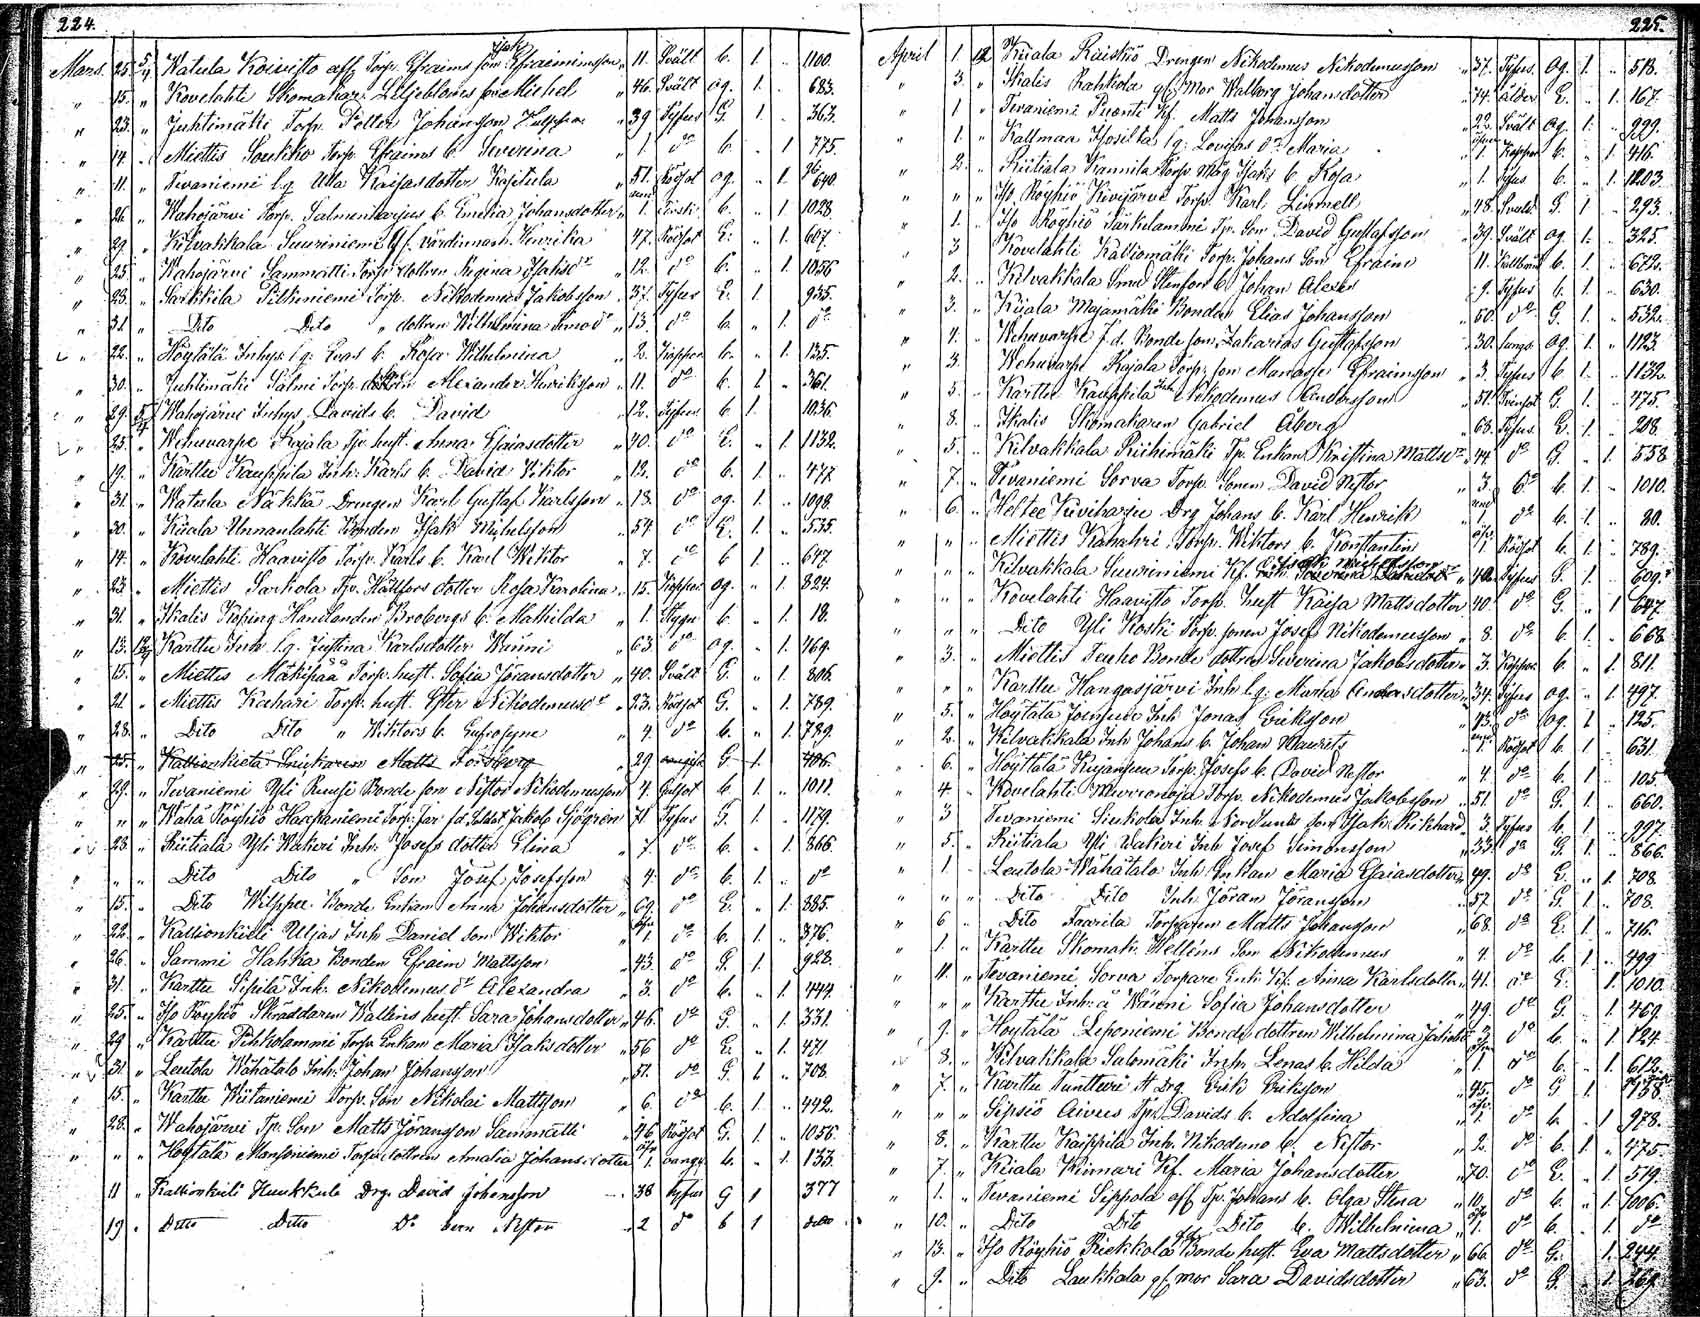 224.
Mars. 25. 5/4 Watula Koivisto aff. Torp. Efraims son Isak Efraimsson " 11. Svält b. 1. .. 1100.
" 15. " Kovelahti Skomakar Liljebloms son Michel " 46. Svält og. 1. .. 683.
" 23. " Juhtimäki Torp. Petter Johansson " 39 Tyfus G 1. .. 363.
" 14. " Miettis Soukko Torp. Efraims b. Severina " 1 do b. " 1 775.
" 11. " Tevaniemi lg. Ulla Kaisasdotter " 51. Rödsot og. " 1. 640.
" 26. " Wahojärvi Torp. Salmenharjus b. Emelia Johansdotter " 1. Torsk. b. " 1. 1028.
" 29. " Kilvakkala Suuriniemi Gf. värdinnan Henrika " 47. Rödsot E. " 1. 607.
" 25. " Wahojärvi Sammatti Torp. dottren Regina Isaksdr " 12. do b. " 1. 1056
" 23. " Sarkkila Pitkäniemi Torp. Nikodemus Jakobsson " 37. Tyfus E. 1. 935.
" 31. " Dito Dito " dottren Wilhelmina " 13. do b. " 1. do
" 22. " Höytälä Inhys. lg. Evas b. Rosa Wilhelmina " 2. Koppor b. " 1. 135.
" 30. " Juhtimäki Salmi Torp. son Alexander Henriksson " 11. do b. 1. " 361.
" 29. 5/4 Wahojärvi Inhys. Davids b. David " 12. Tyfus b. 1. 1036.
" 25. " Wehuvarpe Kojala Tp. hust. Anna Esaiasdotter " 40. do E. " 1. 1132.
" 19. " Karttu Kauppila Inh. Karls b. David Wiktor " 12. do b. 1. .. 477
" 31. " Watula Näkkä Drengen Karl Gustaf Karlsson " 18. do og. 1. .. 1098.
" 30. " Kuala Unnanlahti Bonden Isak Michelsson " 54 do E. 1. .. 535.
" 14. " Kovelahti Haavisto Torp. Karls b. Karl Wiktor " 7. do b 1. .. 647.
" 23. " Miettis Sarkola Tp. Hållfors dotter Rosa Karolina " 15. Koppor og. " 1. 824.
" 31. " Ikalis Köping Handlanden Brobergs b. Mathilda " 1. Slagn b. " 1. 18.
" 13. " Karttu Inh. l.g. Justina Karlsdotter Wänni " 63 do og. " 1. 469.
" 15. " Miettis Mäkipää Torp. hust. Sofia Jöransdotter " 40. Svält G. " 1. 806.
" 21. " Miettis Kahari Torp. hust. Ester Nikodemusdr " 23. Rödsot G. " 1. 789.
" 28. " Dito Dito " Wiktors b. Eufrosyne " 4. do b. " 1. 789.
" 25. " Kallionkieta Snickaren Matts Forsberg 29 G 1. 406.
" 29. " Tevaniemi Yli Ruusi Bonde son Nestor Nikodemusson " 4. Gulsot b. 1. .. 1011.
" " " Wähä Röyhiö Haapaniemi Torp. far fd. Soldat Jakob Sjögren " 71 Tyfus G. 1. .. 1179.
" 28 " Riitiala Yli Wakeri Inh. Josefs dotter Elina " 7. do b. " 1. 866.
" " " Dito Dito " Son Josef Josefsson " 4. do b. 1. " do
" 15. " Dito Wilppu Bonde Enkan Anna Johansdotter " 69. do E. " 1. 885.
" 22. " Kallionkieli Uljas Inh. Daniel Son Wiktor " 1. do b. 1. .. 376.
" 26. " Sammi Hahka Bonden Efraim Mattsson " 43. do G. 1. .. 928.
" 31. " Karttu Sipilä Inh. Nikodemus dr Alexandra " 3. do b. " 1. 444.
" 25. " Iso Röyhiö Skräddaren Walléns hust. Sara Johansdotter " 46. do G. " 1. 331.
" 29 " Karttu Pihkolammi Torp. Enkan Maria Isaksdotter " 56 do E. " 1. 471.
" 31. " Leutola Wähätalo Inh. Johan Johansson " 51. do G. 1. " 708.
" 15. " Karttu Wiitaniemi Torp. Son Nikolai Mattsson " 6. do b. 1. .. 492.
" 28. " Wahojärvi Tp. Son Matts Jöransson Sammatti " 46 Rödsot G. 1. .. 1056.
" " " Höytälä Mansoniemi Torp. dottren Amalia Johansdotter 1. b. " 1. 133.
11 " Kallionkieli Huukkula Drg. David Johansson 38 Tyfus g 1 377
19 " Ditto Ditto Do barn Nestor " 2 do b 1 ditto
225.
April 1. Kuala Ruiskiö Drengen Nikodemus Nikodemusson " 37. Tyfus. Og. 1. .. 518.
" 3. " Ikalis Rahkola gf. Mor Walborg Johansdotter " 74. ålder E. " 1. 167.
" 1 " Tevaniemi Puonti Kf. Matts Johansson " 22. Svält Og. 1. .. 999.
" 1. " Kallmaa lg. Lovisas dr Maria " 1. Koppor b. " 1. 416.
" 2. " Riitiala Kannila Torp. Måg Isaks b. Rosa " 1. Tyfus b. " 1. 1203.
" " " Iso Röyhiö Kivijärvi Torp. Karl Linnell " 48. G. 1 .. 293.
" 1. " Iso Röyhiö Särkilammi Tp. Son David Gustafsson " 39. Svält og. 1. .. 325.
" 3 " Kovelahti Kalliomäki Torp. Johans Son Efraim 11. Kallbrand b. 1. .. 672.
" 2. " Kilvakkala Smed Stenfors b. Johan Alexis " 9. Tyfus b. 1. .. 630.
" 3. " Kuala Majamäki Bonden Elias Johansson " 50. do G. 1. .. 532.
" 4. " Wehuvarpe f.d. Bonde son Zakarias Gustafsson " 30. lungs. Og. 1. " 1123
" 3. " Wehuvarpe Kojala Torp. son Manasse Efraimsson " 3. Tyfus b. 1. .. 1132.
" 5. " Karttu Kauppila Inh. Nikodemus Andersson " 51. G. 1. .. 475.
" 8. " Ikalis Skomakaren Gabriel Åberg " 63. Tyfus E. 1. .. 218.
" 5. " Kilvakkala Riihimäki Tp. Enkan Kristina Mattsdr " 44 do G. " 1. 558
" 7. " Tevaniemi Sorva Torp. Sonen David Nestor " 3 do b. 1. .. 1010.
" 6. " Heltee Kiviharju Drg. Johans b. Karl Henrik " 1. do b. 1. .. 80.
" " " Miettis Kahahri Torp. Wiktors b. Konstantin " 1. Rödsot b. 1. .. 789.
" " " Kilvakkala Suuriniemi Kf. Isak Michelsson " 40. Tyfus G. 1. .. 609.
" " " Kovelahti Haavisto Torp. hust. Kaisa Mattsdotter " 40. do G. " 1 647.
" " " Dito Yli Koski Torp. sonen Josef Nikodemusson " 8. do b. 1. .. 668.
" 3. " Miettis Teuho Bonde dottren Severina Jakobsdotter " 3. Koppor b. " 1. 811.
" " " Karttu Hangasjärvi Inh. lg. Maria Andersdotter " 34. Tyfus og. " 1. 497.
" 5. " Höytälä Inh. Jonas Eriksson " 13. do og. 1 .. 125.
" 2. " Kilvakkala Inh. Johans b. Johan Maurits " 1. Rödsot b. 1. .. 631.
" 6. " Höyttälä Kujanpää Torp. Josefs b. David Nestor " 4. do b. 1. .. 105.
" 4. " Kovelahti Torp. Nikodemus Jakobsson " 51. do G. 1. .. 660.
" 3 " Tevaniemi Siukola Inh. Nordlunds son Isak Rikhard " 3. Tyfus b. 1. .. 997.
" 5. " Riitiala Yli Wakeri Inh. Josef Simonsson " 33. do G. 1. .. 866.
" 1. " Leutola Wähätalo Inh. Enkan Maria Esaiasdotter " 49. do E. " 1. 708.
" " " Dito Dito Inh. Jöran Jöransson " 57. do G. 1. " 708.
" 6 " Dito Taarila Torparen Matts Johansson " 68. do E. 1. .. 716.
" 1. " Karttu Skomak. Hellens Son Nikodemus " 4. do b. 1. .. 499
" 11. " Tevaniemi Sorva Torpare Enk. Kf. Anna Karlsdotter " 41. do E. " 1. 1010.
" " " Karttu Inh. å Wänni Sofia Johansdotter " 49. do G. " 1. 469.
" 9. " Höytälä Leponiemi Bonde dottren Wilhelmina Jakobsdr 2. do b. " 1. 124.
" 8. " Kilvakkala Salomäki Inh. Lenas b. Hilda " 1. do b. " 1. 612.
" 7. " Karttu Tuntturi A. Drg. Erik Eriksson " 45. do G. 1. ..
" " " Sipsiö Aivus Tp. Davids b. Adolfina " 1. do b. " 1. 978.
" 8. " Karttu Kaippila Inh. Nikodemo b. Nestor " 2. do b. 1. " 475.
" 7. " Kuala Kinnari Kf. Maria Johansdotter " 70. do E. " 1. 519.
" 1. " Tevaniemi Seppola aff. Tp. Johans b. Olga Stina " 10. do b. " 1. 1006.
" 10. " Dito Dito Dito b. Wilhelmina " 1. do b. " 1. do
" 13. " Iso Röyhiö Riekkola gf. Bonde hust. Eva Mattsdotter " 66. do G. " 1. 244.
" 9. " Dito Laukkala gf. mor Sara Davidsdotter " 63. do G. " 1. 269.